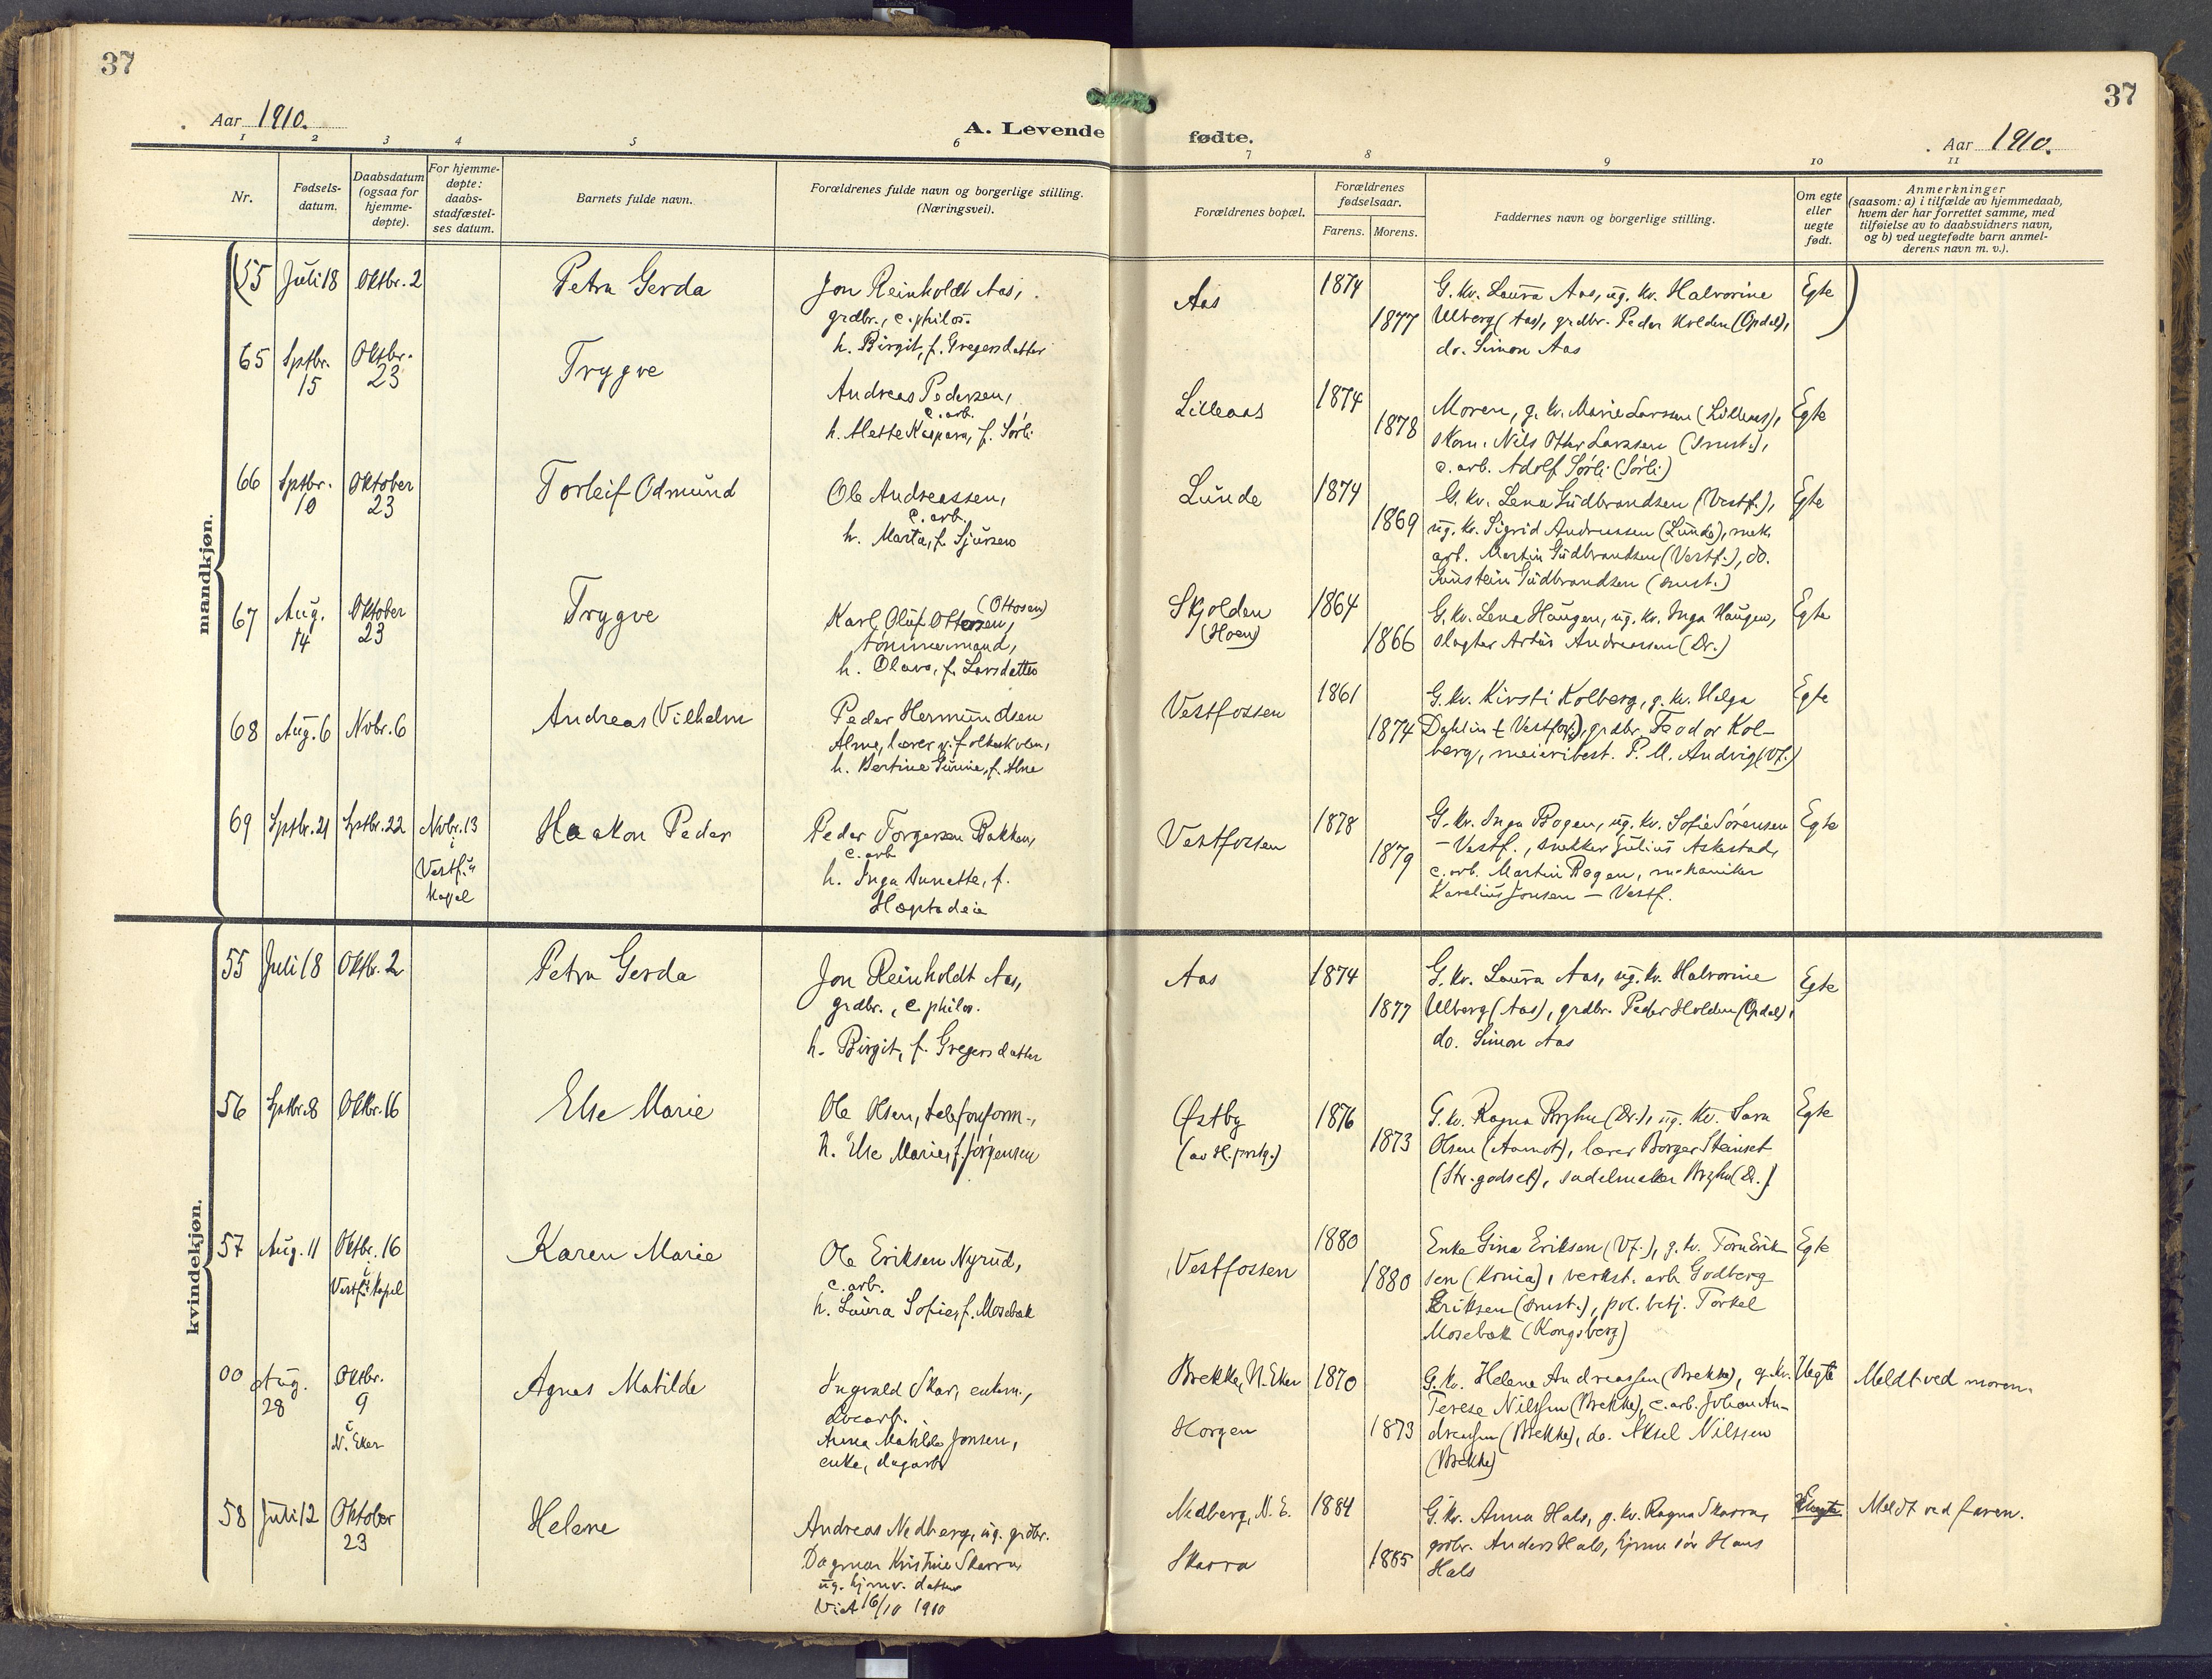 37
37
Aar 1910.
A. Levende fødte.
Aar 1910.
1 2 3 4 5 6 7 8 9 10 11
Nr.
Fødsels-
datum.
Daabsdatum
(ogsaa for
hjemme-
døpte).
For hjemme-
døpte:
daabs-
stadfæstel-
ses datum.
Barnets fulde navn.
Forældrenes fulde navn og borgerlige stilling.
(Næringsvei).
Forældrenes bopæl.
Forældrenes
fødselsaar.
Farens. Morens.
Faddernes navn og borgerlige stilling.
Om egte
eller
uegte
født.
Anmerkninger
(saasom: a) i tilfælde av hjemmedaab,
hvem der har forrettet samme, med
tilføielse av to daabsvidners navn,
og b) ved uegtefødte barn anmel-
derens navn m. v.).
mandkjøn.
(55 Juli 18 Oktbr. 2 Petra Gerda
Jon Reinholdt Aas,
grdbr., c. philos.
h. Birgit, f. Gregersdatter
Aas 1874 1877
G. kv. Laura Aas, ug. kv. Halvorine
Ulberg (Aas), grdbr. Peder Holden (Opdal),
do. Simon Aas
Egte )
65 Sptbr. 15 Oktbr. 23 Trygve
Andreas Pedersen,
c. arb.
h. Alette Kaspara, f. Sørli
Lilleaas 1874 1878
Moren, g. kv. Marie Larssen (Lilleaas),
skom. Nils Otter Larssen (smst.),
c. arb. Adolf Sørli (Sørli)
Egte
66 Sptbr. 10 Oktober 23 Torleif Odmund
Ole Andreassen,
c. arb.
h. Marta, f. Sjursen
Lunde 1874 1869
G. kv. Lena Gudbrandsen (Vestf.),
ug. kv. Sigrid Andreassen (Lunde), mek.
arb. Martin Gudbrandsen (Vestf.), do.
Gunstein Gudbrandsen (smst.)
Egte
67 Aug. 14 Oktober 23 Trygve
(Ottosen)
Karl Oluf Ottersen,
tømmermand,
h. Olava, f. Larsdatter
Skjolden
(Hoen)
1864 1866
G. kv. Lena Haugen, ug. kv. Inga Haugen,
slagter Artur Andreassen (Dr.)
Egte
68 Aug. 6 Novbr. 6 Andreas Vilhelm
Peder Hermundsen
Alme, lærer v. folkeskolen,
h. Bertine Gurine, f. Alme
Vestfossen 1861 1874
G. kv. Kirsti Kolberg, g. kv. Helga
Dahlin (Vestfos), grdbr. Teodor Kol-
berg, meieribest. P. M. Andvig (Vf.)
Egte
69 Sptbr. 21 Sptbr. 22
Novbr. 13
i
Vestf.
kapel
Haakon Peder
Peder Torgersen Bakken,
c. arb.
h. Inga Annette, f.
Hoptadeie
Vestfossen 1878 1879
G. kv. Inga Bogen, ug. kv. Sofie Sørensen
– Vestf., snekker Julius Askestad,
c. arb. Martin Bogen, mekaniker
Karelius Jonsen – Vestf.
Egte
kvindekjøn.
55 Juli 18 Oktbr. 2 Petra Gerda
Jon Reinholdt Aas,
grdbr., c. philos.
h. Birgit, f. Gregersdatter
Aas 1874 1877
G. kv. Laura Aas, ug. kv. Halvorine
Ulberg (Aas), grdbr. Peder Holden (Opdal),
do. Simon Aas
Egte
56 Sptbr. 8 Oktbr. 16 Else Marie
Ole Olsen, telefonform.,
h. Else Marie, f. Jørgensen
Østby
1876 1873
G. kv. Ragna (Dr.), ug. kv. Sara
Olsen (Aamot), lærer Borger Steinset
(Str. godset), sadelmaker (Dr.)
Egte
57 Aug. 11 Oktbr. 16
i
Vestf. kapel
Karen Marie
Ole Eriksen Nyrud,
c. arb.
h. Laura Sofie, f. Mosebæk
Vestfossen 1880 1880
Enke Gina Eriksen (Vf.), g. kv. Torn Erik-
sen (Kruia), verkst. arb. Godberg
Eriksen (smst.), pol. betj. Torkel
Mosebæk (Kongsberg)
Egte
00 Aug. 28 Oktbr. 9
i
N. Eker
Agnes Matilde
Ingvald Skar, enkem.,
Anna Matilde Jonsen,
enke, dagarb.
Brekke, N. Eker 1870
Horgen 1873
G. kv. Helene Andreassen (Brekke), g. kv.
Terese Nilssen (Brekke), c. arb. Johan An-
dreassen (Brekke), do. Aksel Nilssen
(Brekke)
Uegte
Meldt ved moren.
58 Juli 12 Oktober 23 Helene
Andreas Nedberg, ug. grdbr.
Dagmar Kristine Skarra
ug. hjmv. datter
Viet 16/10 1910
Nedberg, N. E. 1884
Skarra 1885
G. kv. Anna Hals, g. kv. Ragna Skarra,
grdbr. Anders Hals, hjmv. søn Hans
Hals
Uegte
Meldt ved faren.